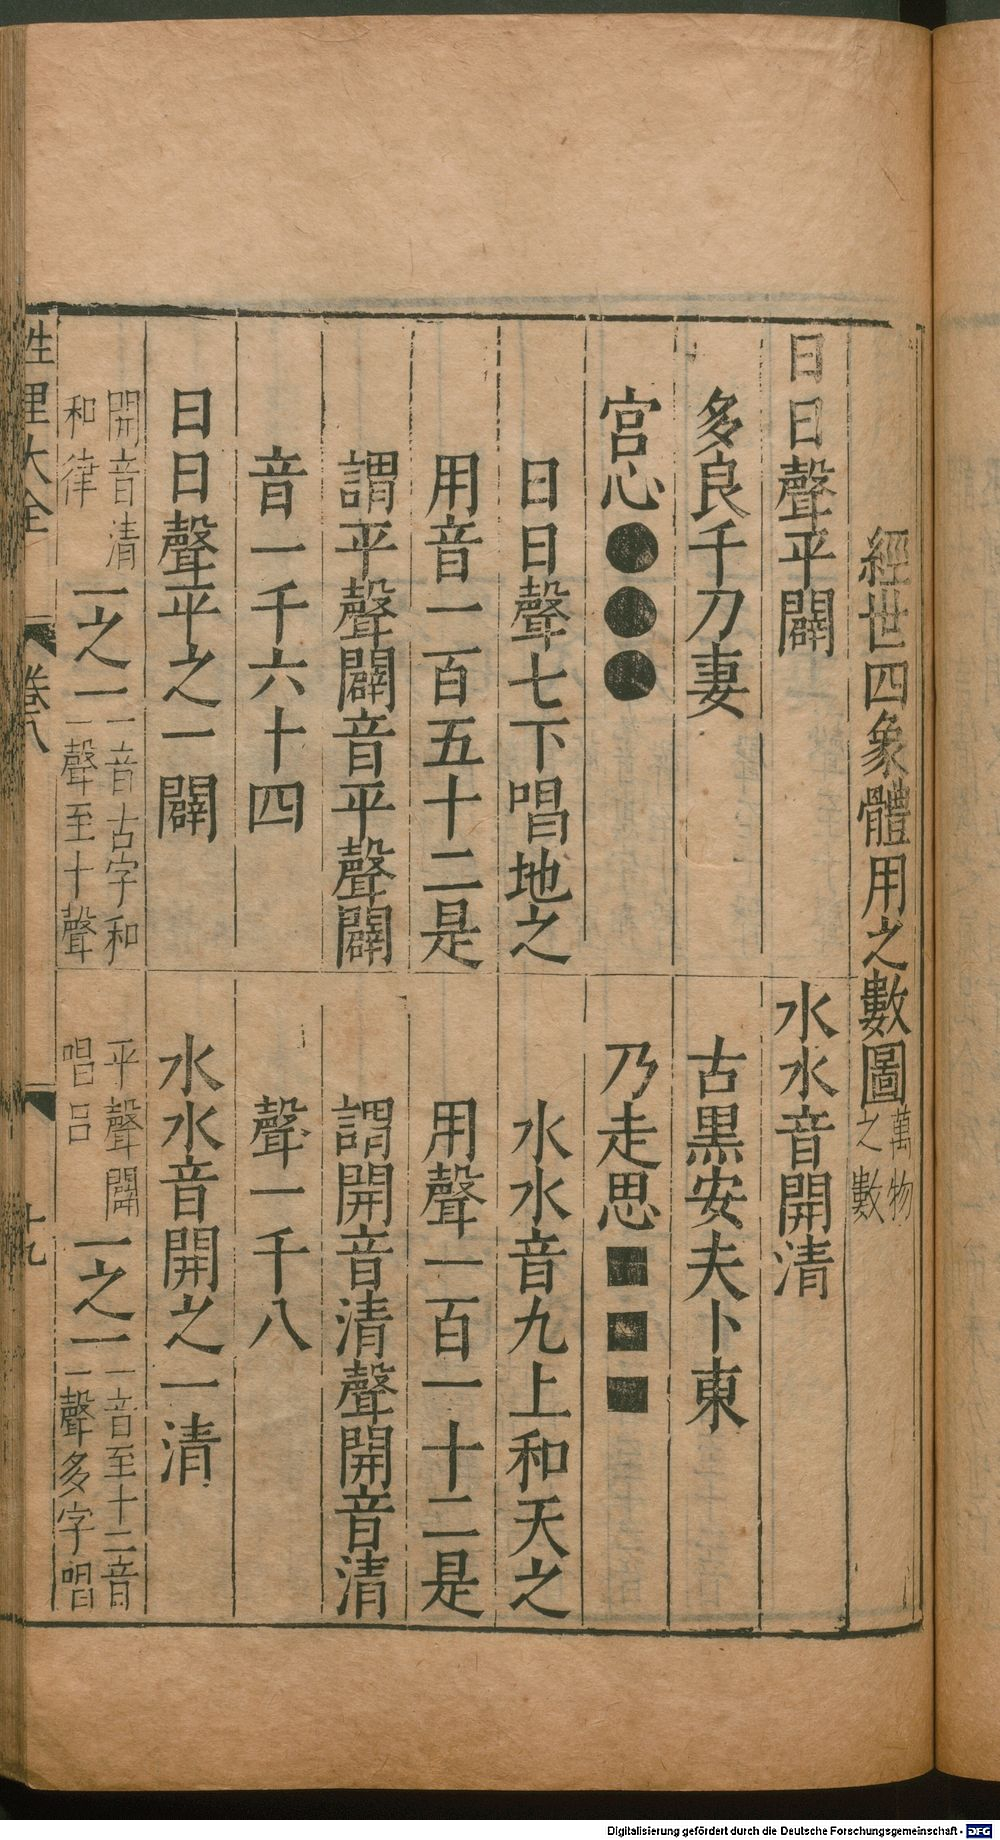 經世四象體用之數圖萬物之數
日日聲平闢
水水音開清
多良千刀妻
古黑安夫卜東
宮心●●●
乃走思■■■
日日聲七下唱地之
水水音九上和天之
用音一百五十二是
用聲一百一十二是
謂平聲闢音平聲闢
謂開音清聲開音清
音一千六十四
聲一千八
日日聲平之一闢
水水音開之一清
開音清和律一之一一音古字和一聲至十聲
平聲闢唱呂一之一一音至十二音一聲多字唱
性理大全 卷八 十九
Digitalisierung gefördert durch die Deutsche Forschungsgemeinschaft - DFG